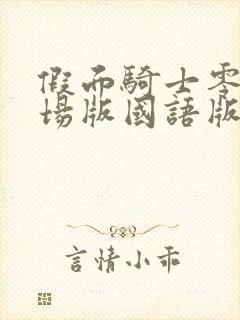 假面騎士零
場版國語版
言情小乖